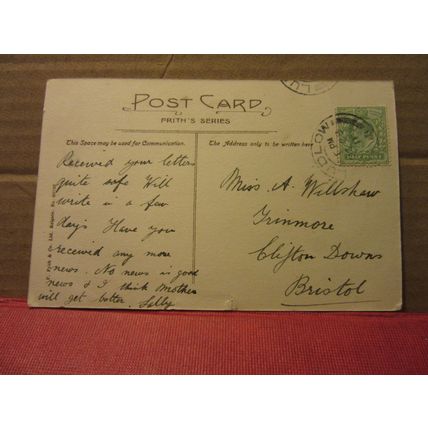 POST CARD
FRITH'S SERIES
This Space may be used for Communication.
The Address only to be written here
Received your letters
quite safe Will
write in a few
days Have you
received any more
news. No news is good
news & I think Mother
will get better. Lilly
Miss A. Willshaw
Trinmore
Clifton Downs
Bristol
LUDLOW
F. Frith & Co. Ltd., Reigate. No.
HALFPENNY
LU